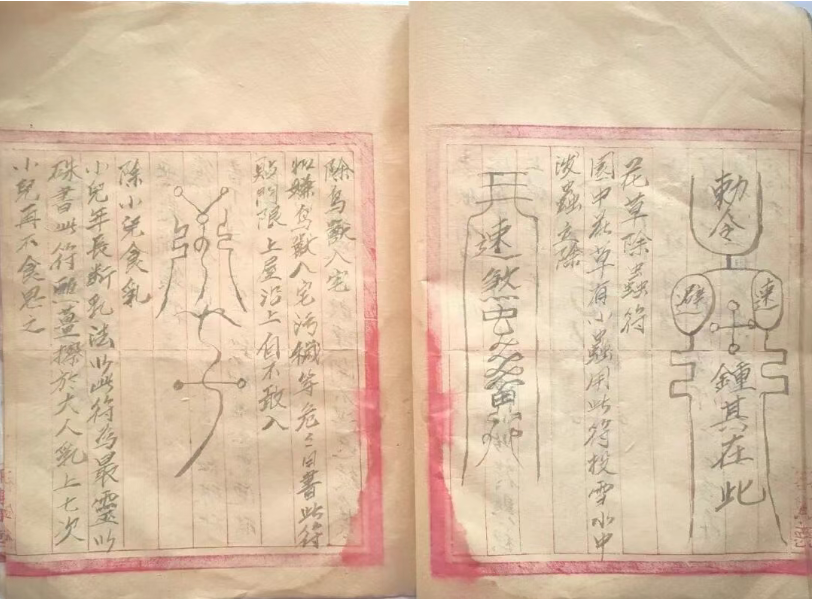 勅令
速
鍾其在此
花草除蟲符
園中花草有小蟲用此符投雪水中
蟲立除
速煞
除鳥獸入宅
如嫌鳥獸入宅污穢等危々日書此符
貼門限上屋沿上自不敢入
除小兒食乳
小兒年長斷乳法以此符為最靈以
硃書此符薑擦於大人乳上七次
小兒再不食思之